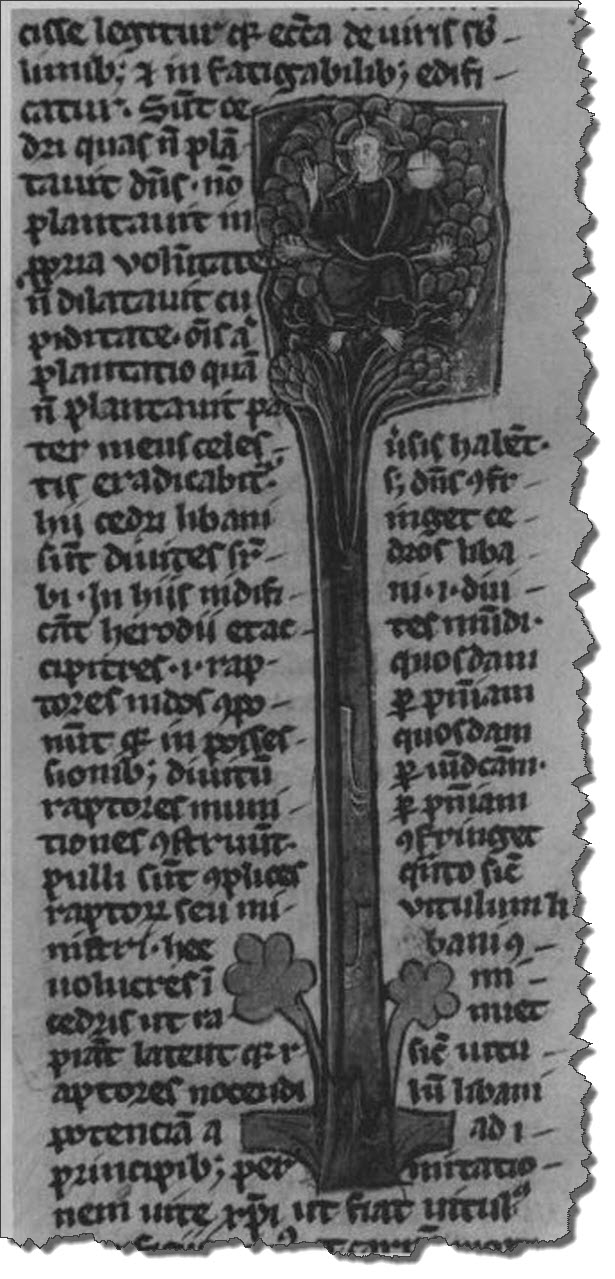 cisse legitur qꝛ ecc̄a de viris sub-
limib; ⁊ in fatigabilib; edifi-
catur. Sūt ce
dri quas n̄ plā
tauit dn̄s. nō
plantauit in
ꝓpria volūtate
n̄ dilatauit cu
piditate. oīs a'
plantatio quā
n̄ plantauit pa
ter meus celes-
tis eradicabit᷑.
hii cedri libani
sūt diuites suꝑ-
bi. In hiis nidifi-
cāt herodii et ac-
cipitres .i. rap-
tores nidos ꝯpo-
nūt qꝛ in posses-
sionib; diuitū
raptores muni-
tiones ꝯstruūt.
pulli sūt ꝯplices
raptoꝝ seu mi-
nistri. hee
uolucres ī
cedris ut ra
piāt latent qꝛ r-
aptores nocendi
potenciā a
principib; per
u'sis habēt.
s; dn̄s ꝯfr-
inget ce-
dros liba-
ni .i. diui-
tes mūdi.
quosdam
ꝑ pn̄iam
quosdam
ꝑ uīdcām.
ꝑ pn̄iam
ꝯfringet
sic̄
vitulum li
bani ꝯ-
mi-
nuet
sic̄ uitu-
lū libani
ad i-
mitatio-
nem uite xp̄i ut fiat uitulꝰ